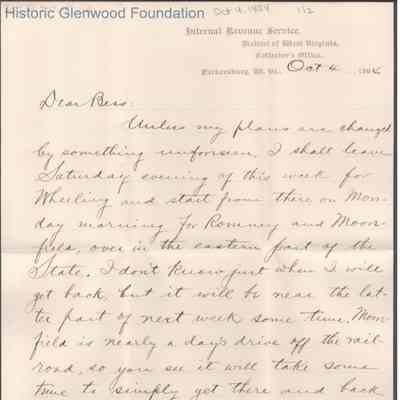 Historic Glenwood Foundation
Oct 4, 1904 1/2
Internal Revenue Service,
District of West Virginia,
Collector's Office,
Parkersburg, W. Va., Oct 4 1904
Dear Bess:
Unless my plans are changed
by something unforseen, I shall leave
Saturday evening of this week for
Wheeling and start from there on Mon-
day morning for Romney and Moor-
field, over in the eastern part of the
State. I don't know just when I will
get back, but it will be near the lat-
ter part of next week some time. Moor-
field is nearly a day's drive off the rail-
road, so you see it will take some
time to simply get there and back